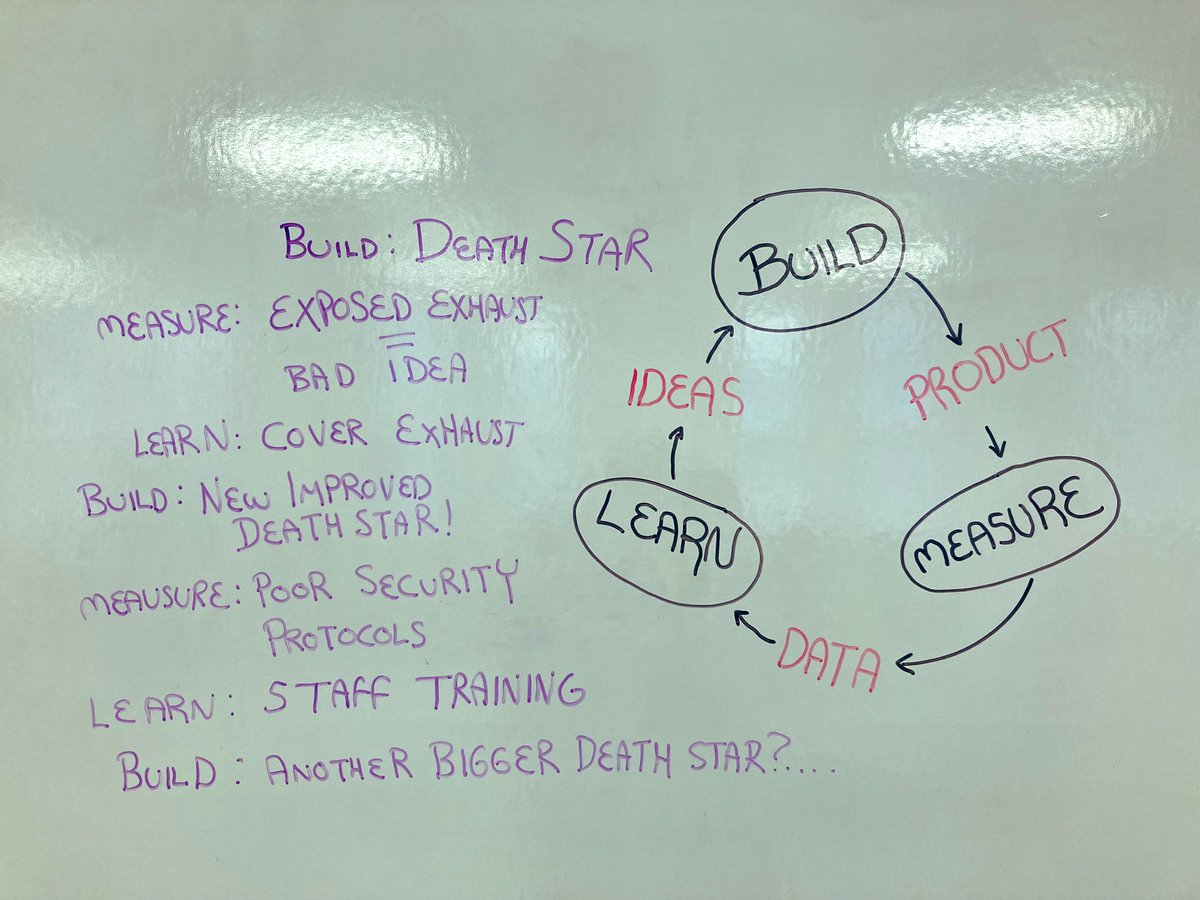 BUILD: DEATH STAR
MEASURE: EXPOSED EXHAUST
BAD IDEA
LEARN: COVER EXHAUST
BUILD: NEW IMPROVED
DEATH STAR!
MEAUSURE: POOR SECURITY
PROTOCOLS
LEARN: STAFF TRAINING
BUILD: ANOTHER BIGGER DEATH STAR?....
BUILD
PRODUCT
MEASURE
DATA
LEARN
IDEAS